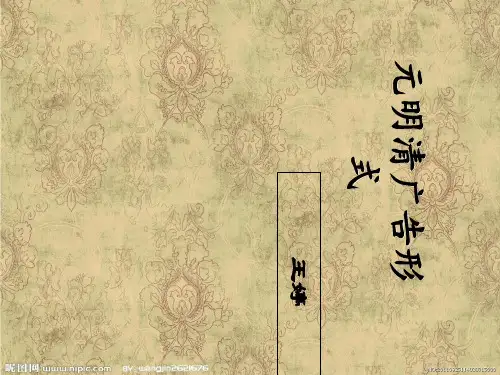 元明清广告形
式
王婷
昵图网 www.nipic.com BY: wangjin2621676